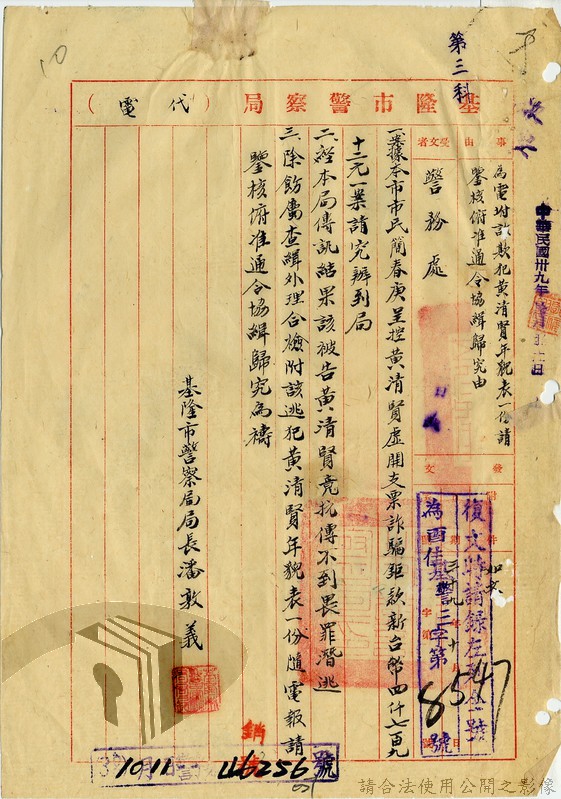 第三科
基隆市警察局（代電）
事由
為電附詐欺犯黃清賢年貌表一份請
鑒核俯准通令協緝歸究由
受文者
警務處
中華民國卅九年
發文
附件
如文
日期
三十九年十月
字第
號
復文時請錄左列全號
為酉佳基警三字第
8547
號
一、案據本市市民簡春庚呈控黃清賢虛開支票詐騙鉅款新台幣四仟七百九
十二元一案請究辦到局
二、經本局傳訊結果該被告黃清賢竟抗傳不到畏罪潛逃
三、除飭屬查緝外理合檢附該逃犯黃清賢年貌表一份隨電報請
鑒核俯准通令協緝歸究為禱
基隆市警察局局長潘敦義
39 10月11
46256
號
請合法使用公開之影像